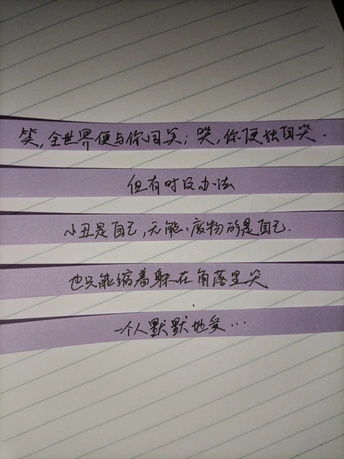 笑,全世界便与你同笑;哭,你便独自哭.
但有时没办法
小丑是自己,无能、废物的是自己.
也只能缩着躲在角落里哭
一个人默默地受...